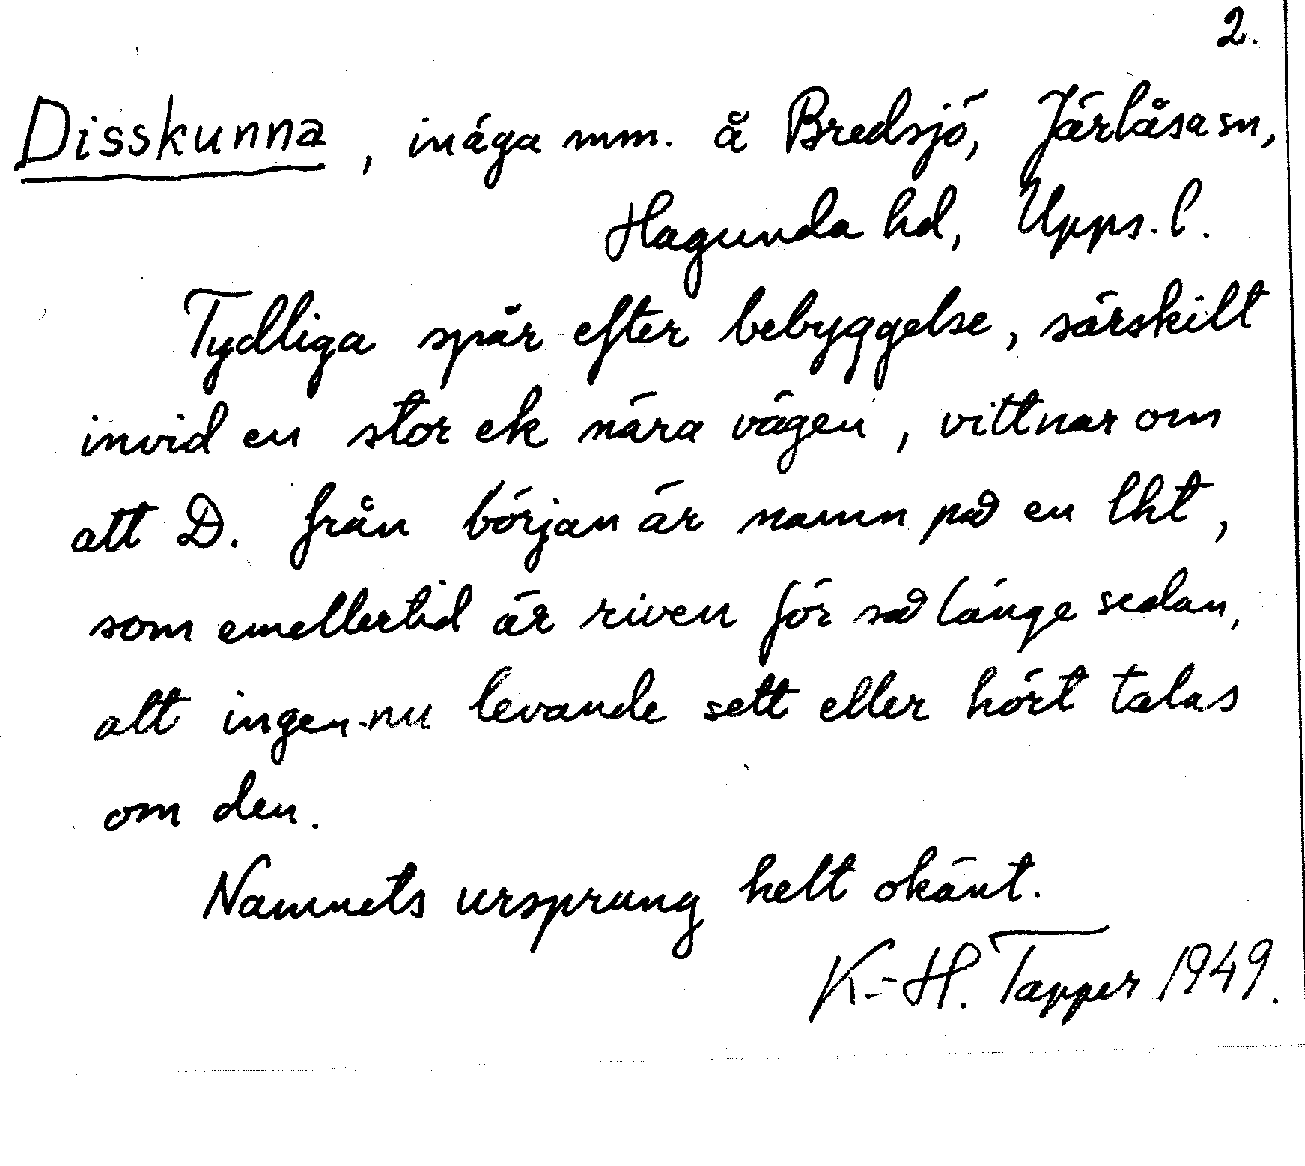 2.
Disskunna, inäga mm. å Bredsjö, Järlåsa sn,
Hagunda hd, Upps. l.
Tydliga spår efter bebyggelse, särskilt
invid en stor ek nära vägen, vittnar om
att D. från början är namn på en lht,
som emellertid är riven för så länge sedan,
att ingen nu levande sett eller hört talas
om den.
Namnets ursprung helt okänt.
K.-H. Tapper 1949.